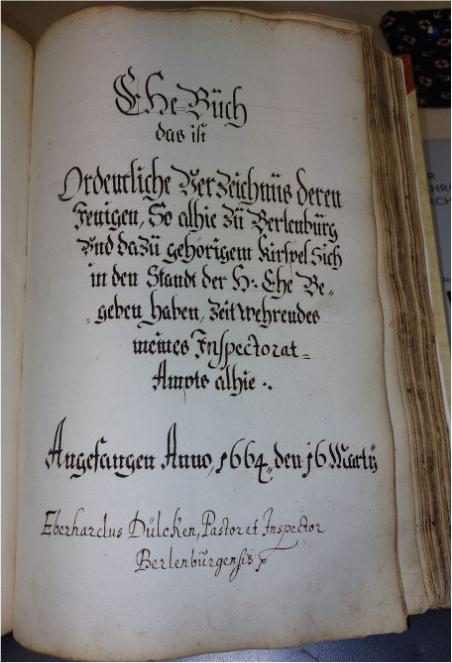 Ehe-Büch
das ist
Ordentliche Verzeichnüs deren
Jenigen, So alhie zü Berlenbürg
Vnd dazü gehörigem Kirspel Sich
in den Standt der H: Ehe Be„
geben haben, Zeit wehrendes
meines Inspectorat=
Ampts alhie ·.
Angefangen Anno, 1664, den 16 Martij
Eberhardus Dülcken, Pastor et Inspector
Berlenburgensis